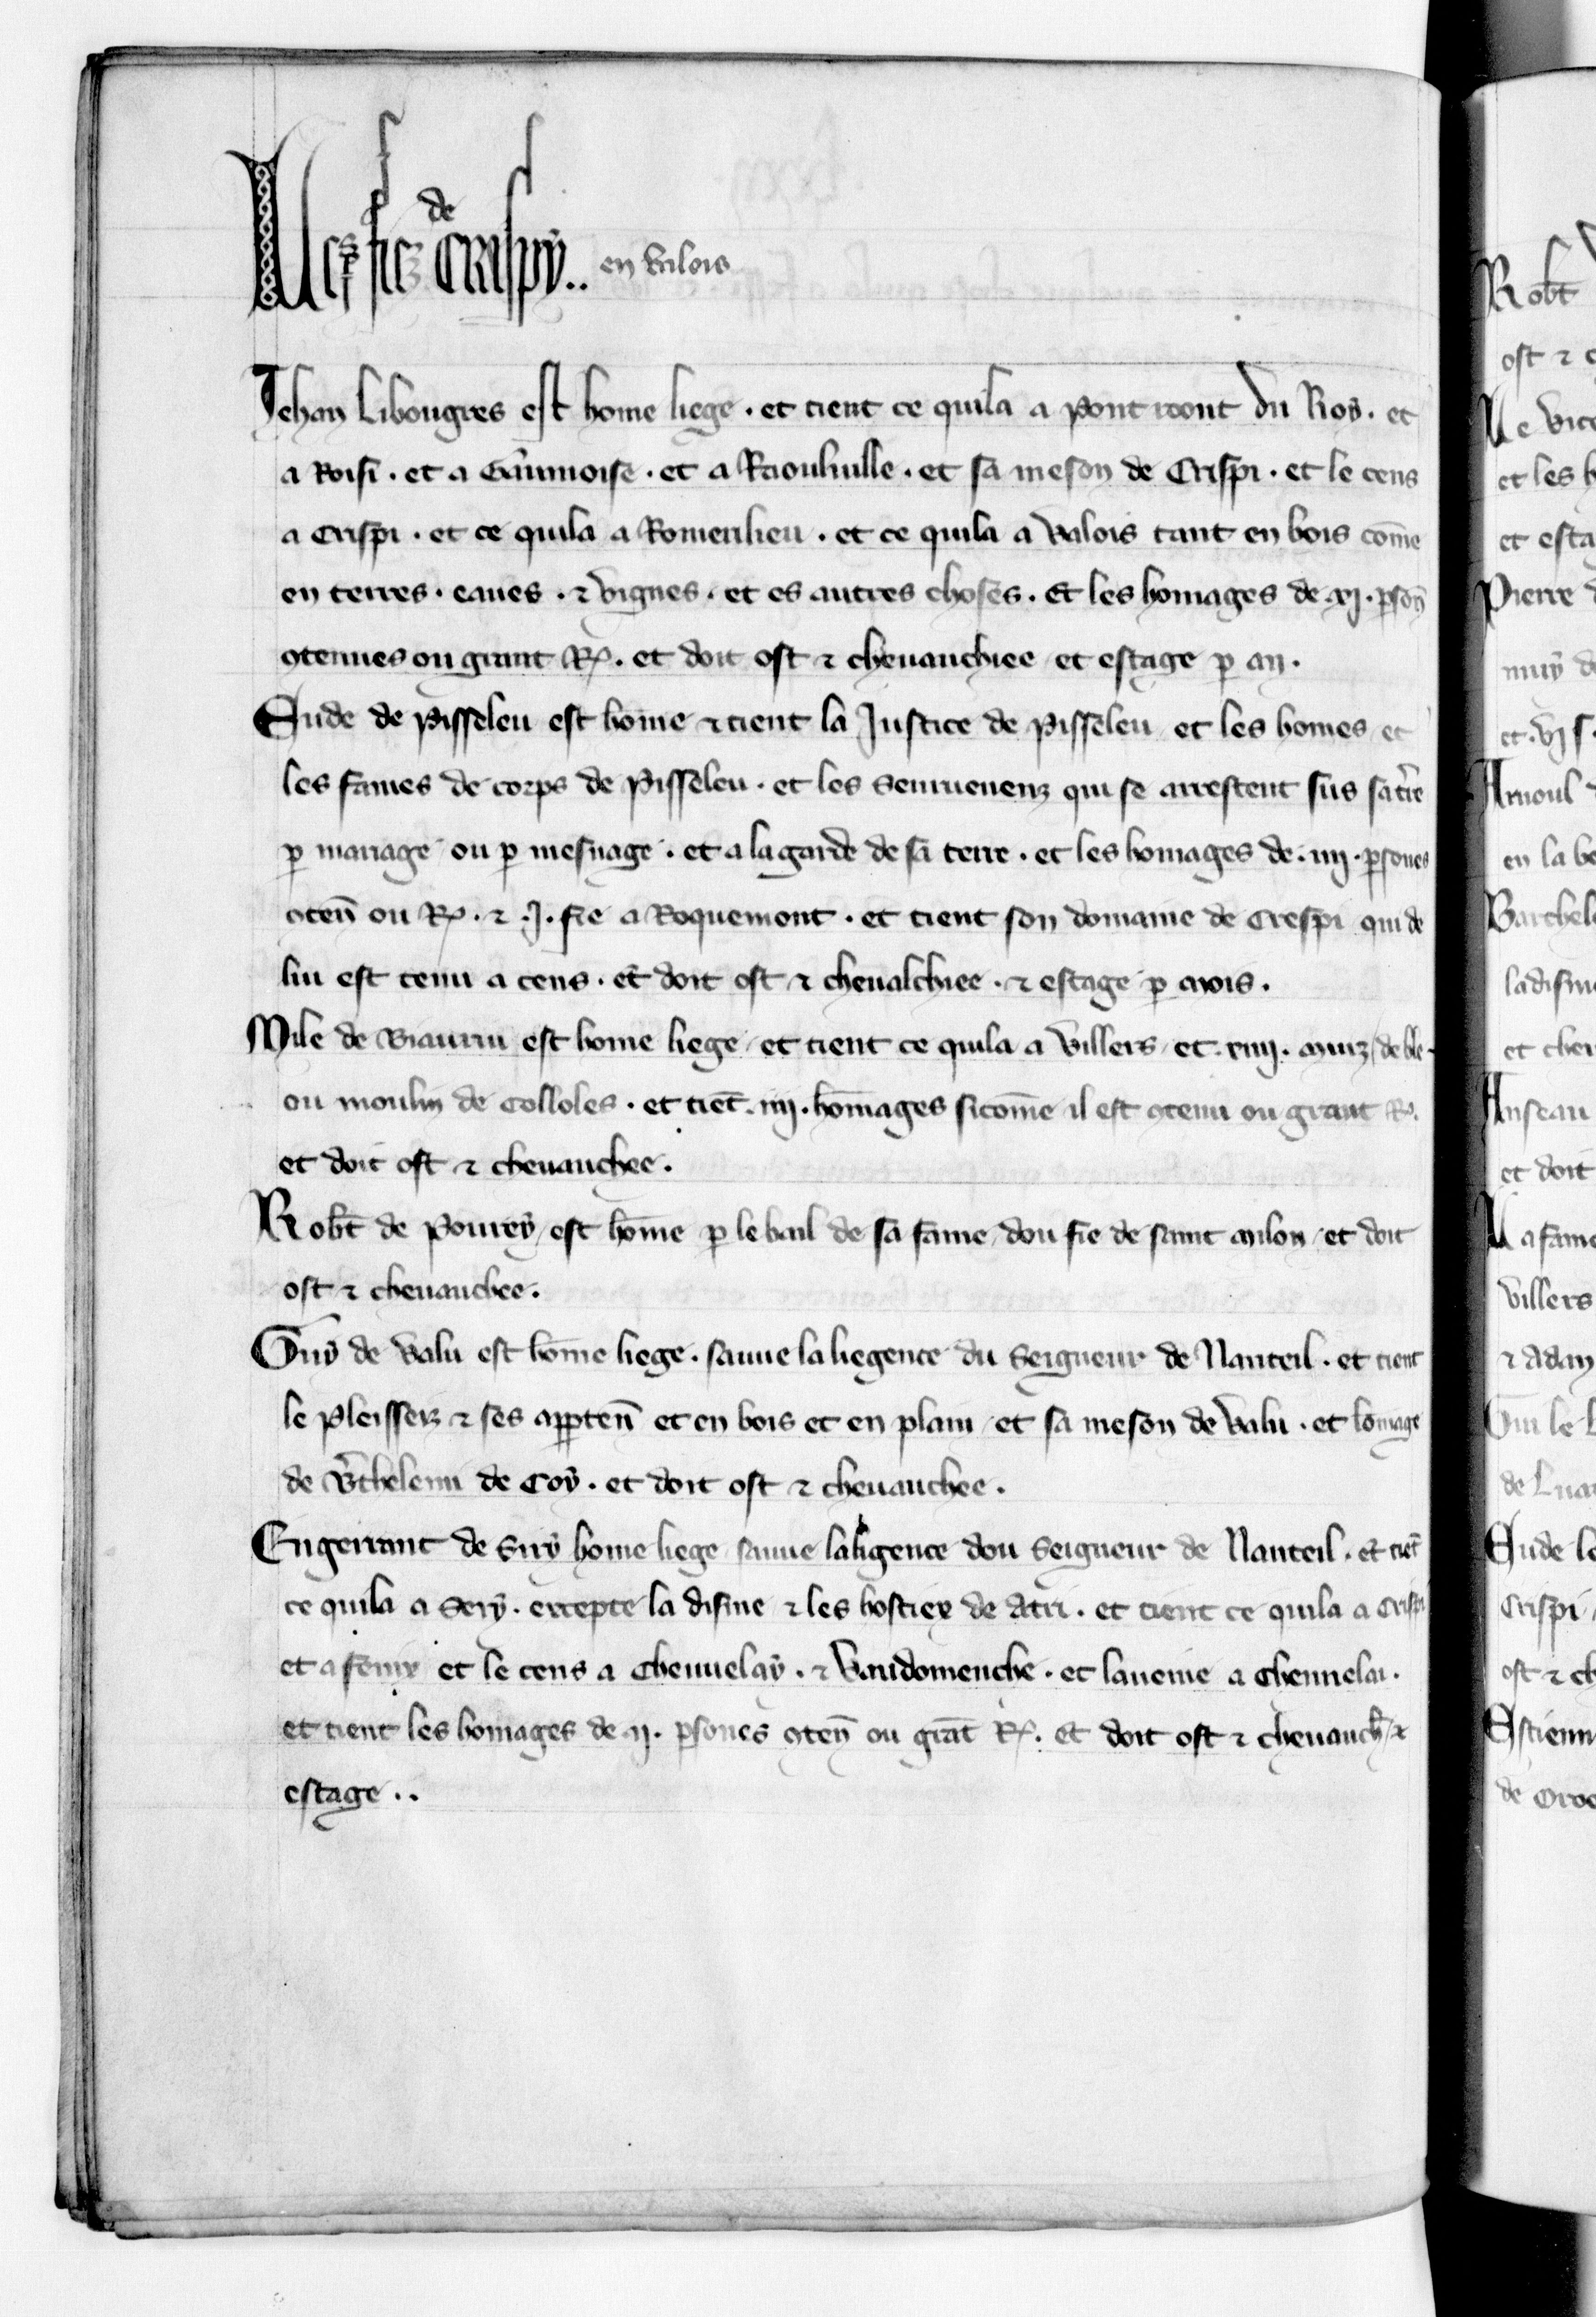 Les fiez de Crispy.. en Valois
Jehan Libougres est home liege · et tient ce quila a Pont reont du Roy · et
a Roisi · et a Gaimoise · et a Raouliulle · et sa meson de Crispi · et le cens
a Crispi · et ce quila a Romenlieu · et ce quila a Valois tant en bois com̄e
en terres · eaues · ⁊ vignes · et es autres choses · Et les homages de xi · ꝑson̄
ꝯtenues ou grant R̃ · et doit ost ⁊ cheuauchiee et estage ꝑ an ·
Eude de Pisseleu est home ⁊ tient la Justice de Pisseleu et les homes et
les fames de corps de Pisseleu · et les seuruenenz qui se arrestent sus sa tr̃e
ꝑ mariage ou ꝑ mesnage · et a la garde de sa terre · et les homages de · iiij · ꝑsones
ꝯten̄ ou R̃ · ⁊ · J · fie a Roquemont · et tient son domaine de Crespi qui de
lui est tenu a cens · et doit ost ⁊ cheualchiee · ⁊ estage ꝑ mois ·
Mile de Biauriu est home liege et tient ce quila a Villers et · xiiij · muiz de ble ·
ou moulin de Colloles · et tiēt · iiij · hom̄ages sicom̄e il est ꝯtenu ou grant R̃ ·
et doit ost ⁊ cheuauchee ·
Rob̄t de Pourey est hom̄e ꝑ le bail de sa fame dou fie de saint milon et doit
ost ⁊ cheuauchee ·
Guy de Valu est hom̄e liege · sauue la liegence du Seigneur de Nanteil · et tient
le Pleissez ⁊ ses aꝑten̄ et en bois et en plain et sa meson de Valu · et homage
de B̃thelemi de Coy · et doit ost ⁊ cheuauchee ·
Engerrant de Siry home liege sauue la ligence dou Seigneur de Nanteil · et tiēt
ce quila a Sery · excepte la disme ⁊ les hostiex de Atri · et tient ce quila a Crispi
et a et le cens a Cheuuelay · ⁊ Vaudomenche · et laueine a Cheuuelai ·
et tient les homages de ij · ꝑsones ꝯten̄ ou grāt R̃ · Et doit ost ⁊ cheuauch̄ ⁊
estage ··
Rob̄t
ost ⁊
Le
et les
et esta
Pierre
muy
et · vj s ·
Arnoul
en la
Barthel
la disme
et
Anseau
et doit
La fame
Villers
⁊ Adam
Gui le
de
Eude le
Crispi
ost ⁊ ch
Estienn
de